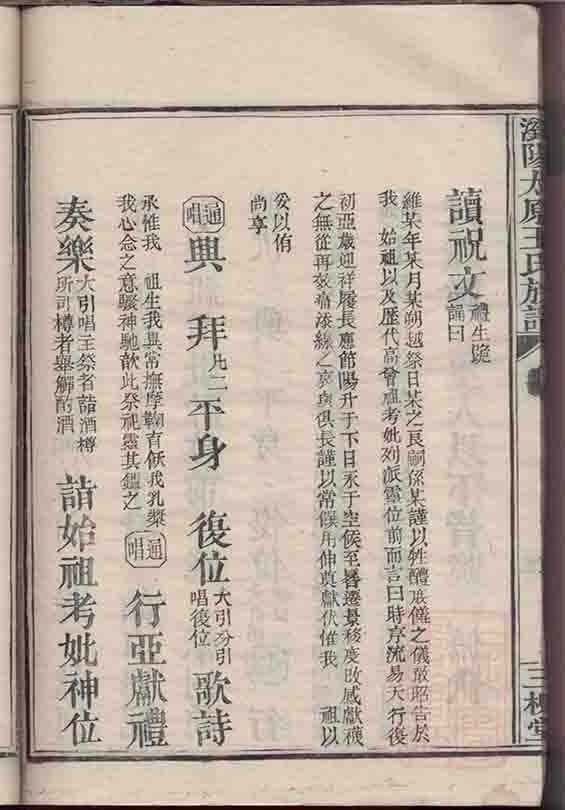 讀祝文禮生跪誦曰
維某年某月某朔越祭日某之良嗣孫某謹以牲醴庶儀之儀敢昭告於
我 始祖以及歷代高曾祖考妣列派靈位前而言曰時序流易天行復
初亞歲迎祥履長應節陽升于下日永于空候至晷遷景移慶改感獻襪
之無從再效痛添線之哀與俱長謹以常候用伸奠獻伏惟我 祖以
妥以侑
尚享
通唱 興 拜凡二 平身 復位大引分引唱復位 歌詩
承惟我 祖生我異常撫摩鞠育飲我乳漿
我心念之意騣神馳歆此祭祀靈其鑑之 通唱 行亞獻禮
奏樂大引唱主祭者詣酒樽所司樽者舉觶酌酒 詣始祖考妣神位
陽太原王氏族譜
三槐堂